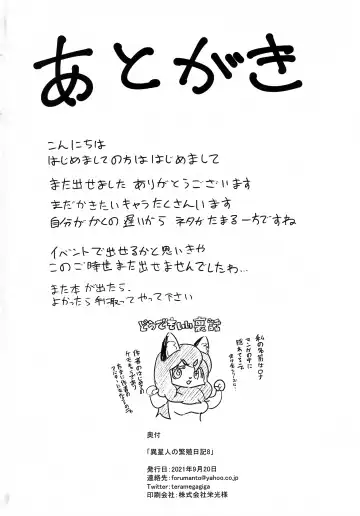 あとがき
こんにちは
はじめましての方は はじめまして
また出せました ありがとうございます
まだかきたいキャラたくさんいます
自分がかくの遅いから ネタがたまる一方ですね
イベントで出せるかと思いきや
このご時世まだ出せませんでしたわ…
また本が出たら、
よかったら手に取ってやって下さい
どうでもいい裏話
私の名前はロナ
マンガの中に
隠れてるヨ
奥付
「異星人の繁殖日記8」
発行日：2021年9月20日
連絡先：forumanto@yahoo.co.jp
Twitter：teramegagiga
印刷会社：株式会社栄光様